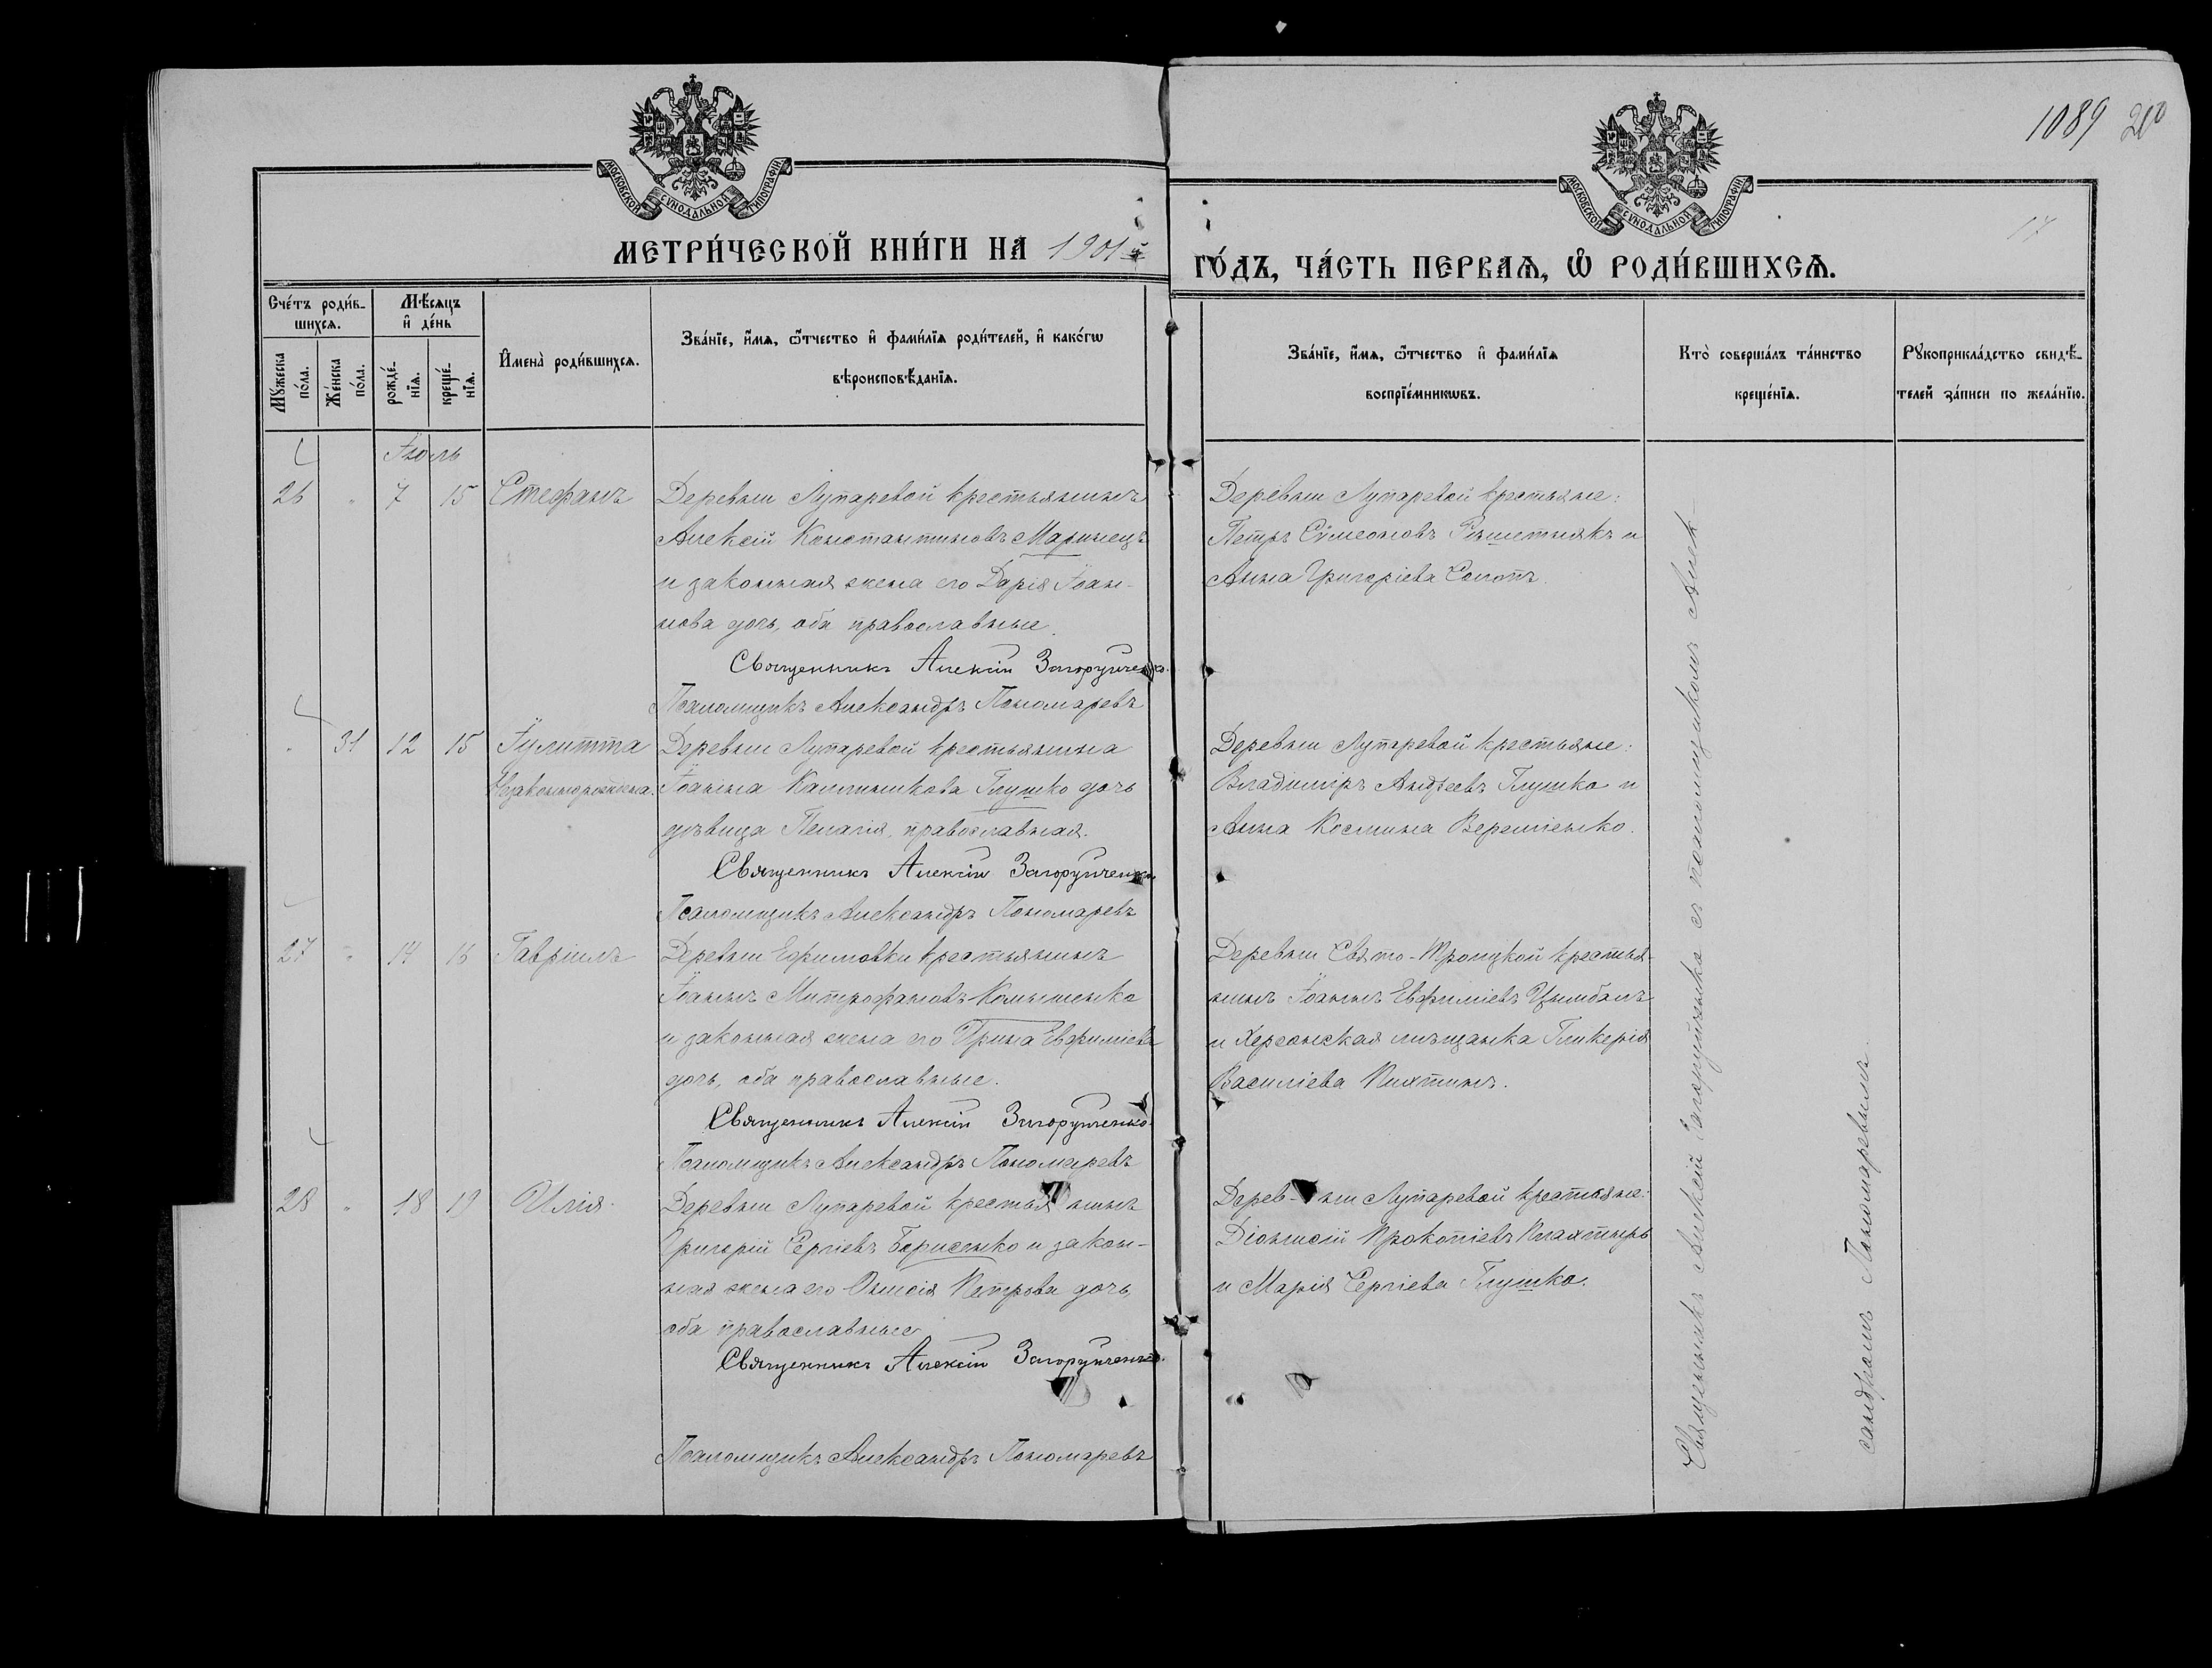 1089 200
17
МОСКОВСКОЙ СѴНОДАЛЬНОЙ ТИПОГРАФІИ
МОСКОВСКОЙ СѴНОДАЛЬНОЙ ТИПОГРАФІИ
МЕТРИ́ЧЕСКОЙ КНИ́ГИ НА 1901 й
ГО́ДЪ, ЧА́СТЬ ПЕРВАѦ, Ѽ РОДИ́ВШИХСѦ.
Счéтъ роди́в-
шихсѧ.
Мꙋ́жеска
по́ла.
Же́нска
по́ла.
Мѣ́сѧцъ
и҆ де́нь
рожде́-
нїѧ.
креще́-
нїѧ.
И҆мена̀ роди́вшихсѧ.
Зва́нїе, и҆́мѧ, ѻ҆́тчество и҆ фами́лїѧ роди́телей, и҆ како́гѡ
вѣроисповѣ́данїѧ.
Зва́нїе, и҆́мѧ, ѻ҆́тчество и҆ фами́лїѧ
воспрїе́мникѡвъ.
Кто̀ соверша́лъ та́инство
креще́нїѧ.
Рꙋкоприкла́дство свидѣ́-
телей за́писи по жела́нїю.
Іюль
26 " 7 15 Стефанъ
Деревни Лупаревой крестьянинъ
Алексій Константиновъ Маринецъ
и законная жена его Дарія Іоан-
нова дочь, оба православные.
Священникъ Алексій Загоруйченко.
Псаломщикъ Александръ Пономаревъ
Деревни Лупаревой крестьяне:
Петръ Сѵмеоновъ Рѣшетнякъ и
Анна Григоріева Солопъ.
" 31 12 15 Іулитта
Незаконнорождена.
Деревни Лупаревой крестьянина
Іоанна Каллиникова Глушко дочь
дѣвица Пелагія, православная.
Священникъ Алексій Загоруйченко
Псаломщикъ Александръ Пономаревъ
Деревни Лупаревой крестьяне:
Владиміръ Андреевъ Глушко и
Анна Космина Веремѣенко.
27 " 14 16 Гавріилъ
Деревни Ефимовки крестьянинъ
Іоаннъ Митрофановъ Колышенко
и законная жена его Ирина Евфиміева
дочь, оба православные.
Священникъ Алексій Загоруйченко.
Псаломщикъ Александръ Пономаревъ
Деревни Свято-Троицкой крестья-
нинъ Іоаннъ Евфиміевъ Цымбалъ
и Херсонская мѣщанка Гликерія
Василіева Пихтинъ.
28 " 18 19 Илія
Деревни Лупаревой крестьянинъ
Григорій Сергіевъ Борисенко и закон-
ная жена его Онисія Петрова дочь,
оба православные
Священникъ Алексій Загоруйченко.
Псаломщикъ Александръ Пономаревъ
Дерев-ни Лупаревой крестьяне:
Діонисій Прокопіевъ Плахтырь
и Марія Сергіева Глушко.
Священникъ Алексій Загоруйченко съ псаломщикомъ Алек-
сандромъ Пономаревымъ.